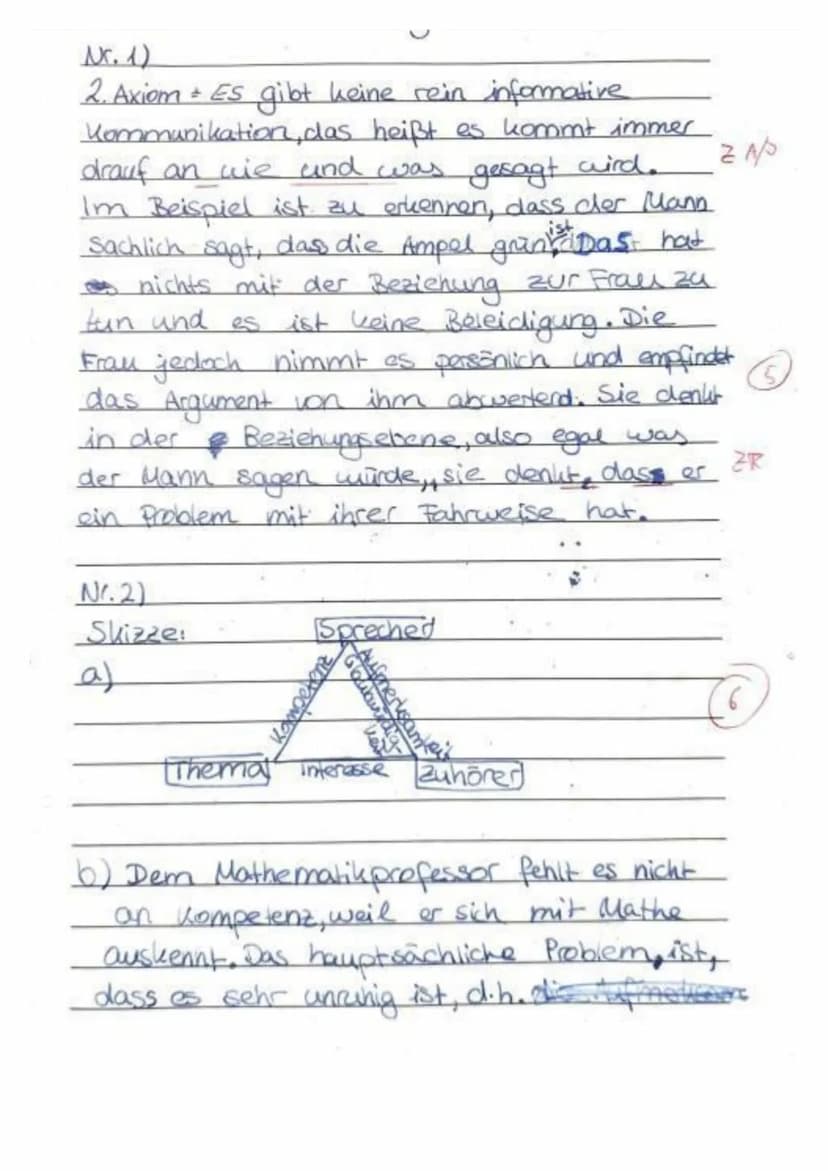 Nr. 1)
2. Axiom = Es gibt keine rein informative
Kommunikation, das heißt es kommt immer
drauf an wie und was gesagt wird.
Z
Im Beispiel ist zu erkennen, dass der Mann
sachlich sagt, das die Ampel grün ist. Das hat
nichts mit der Beziehung zur Frau zu
tun und es ist keine Beleidigung. Die
Frau jedoch nimmt es persönlich und empfindet
5
das Argument von ihm abwertend. Sie denkt
in der Beziehungsebene, also egal was
der Mann sagen würde, sie denkt, dass er
ZR
ein Problem mit ihrer Fahrweise hat.
Nr. 2)
Skizze:
Sprecher
a)
Kompetenz
Glaubwürdig-
keit
Aufmerksamkeit
6
Thema
Interesse
Zuhörer
b) Dem Mathematikprofessor fehlt es nicht
an Kompetenz, weil er sich mit Mathe
auskennt. Das hauptsächliche Problem, ist,
dass es sehr unruhig ist, d.h.